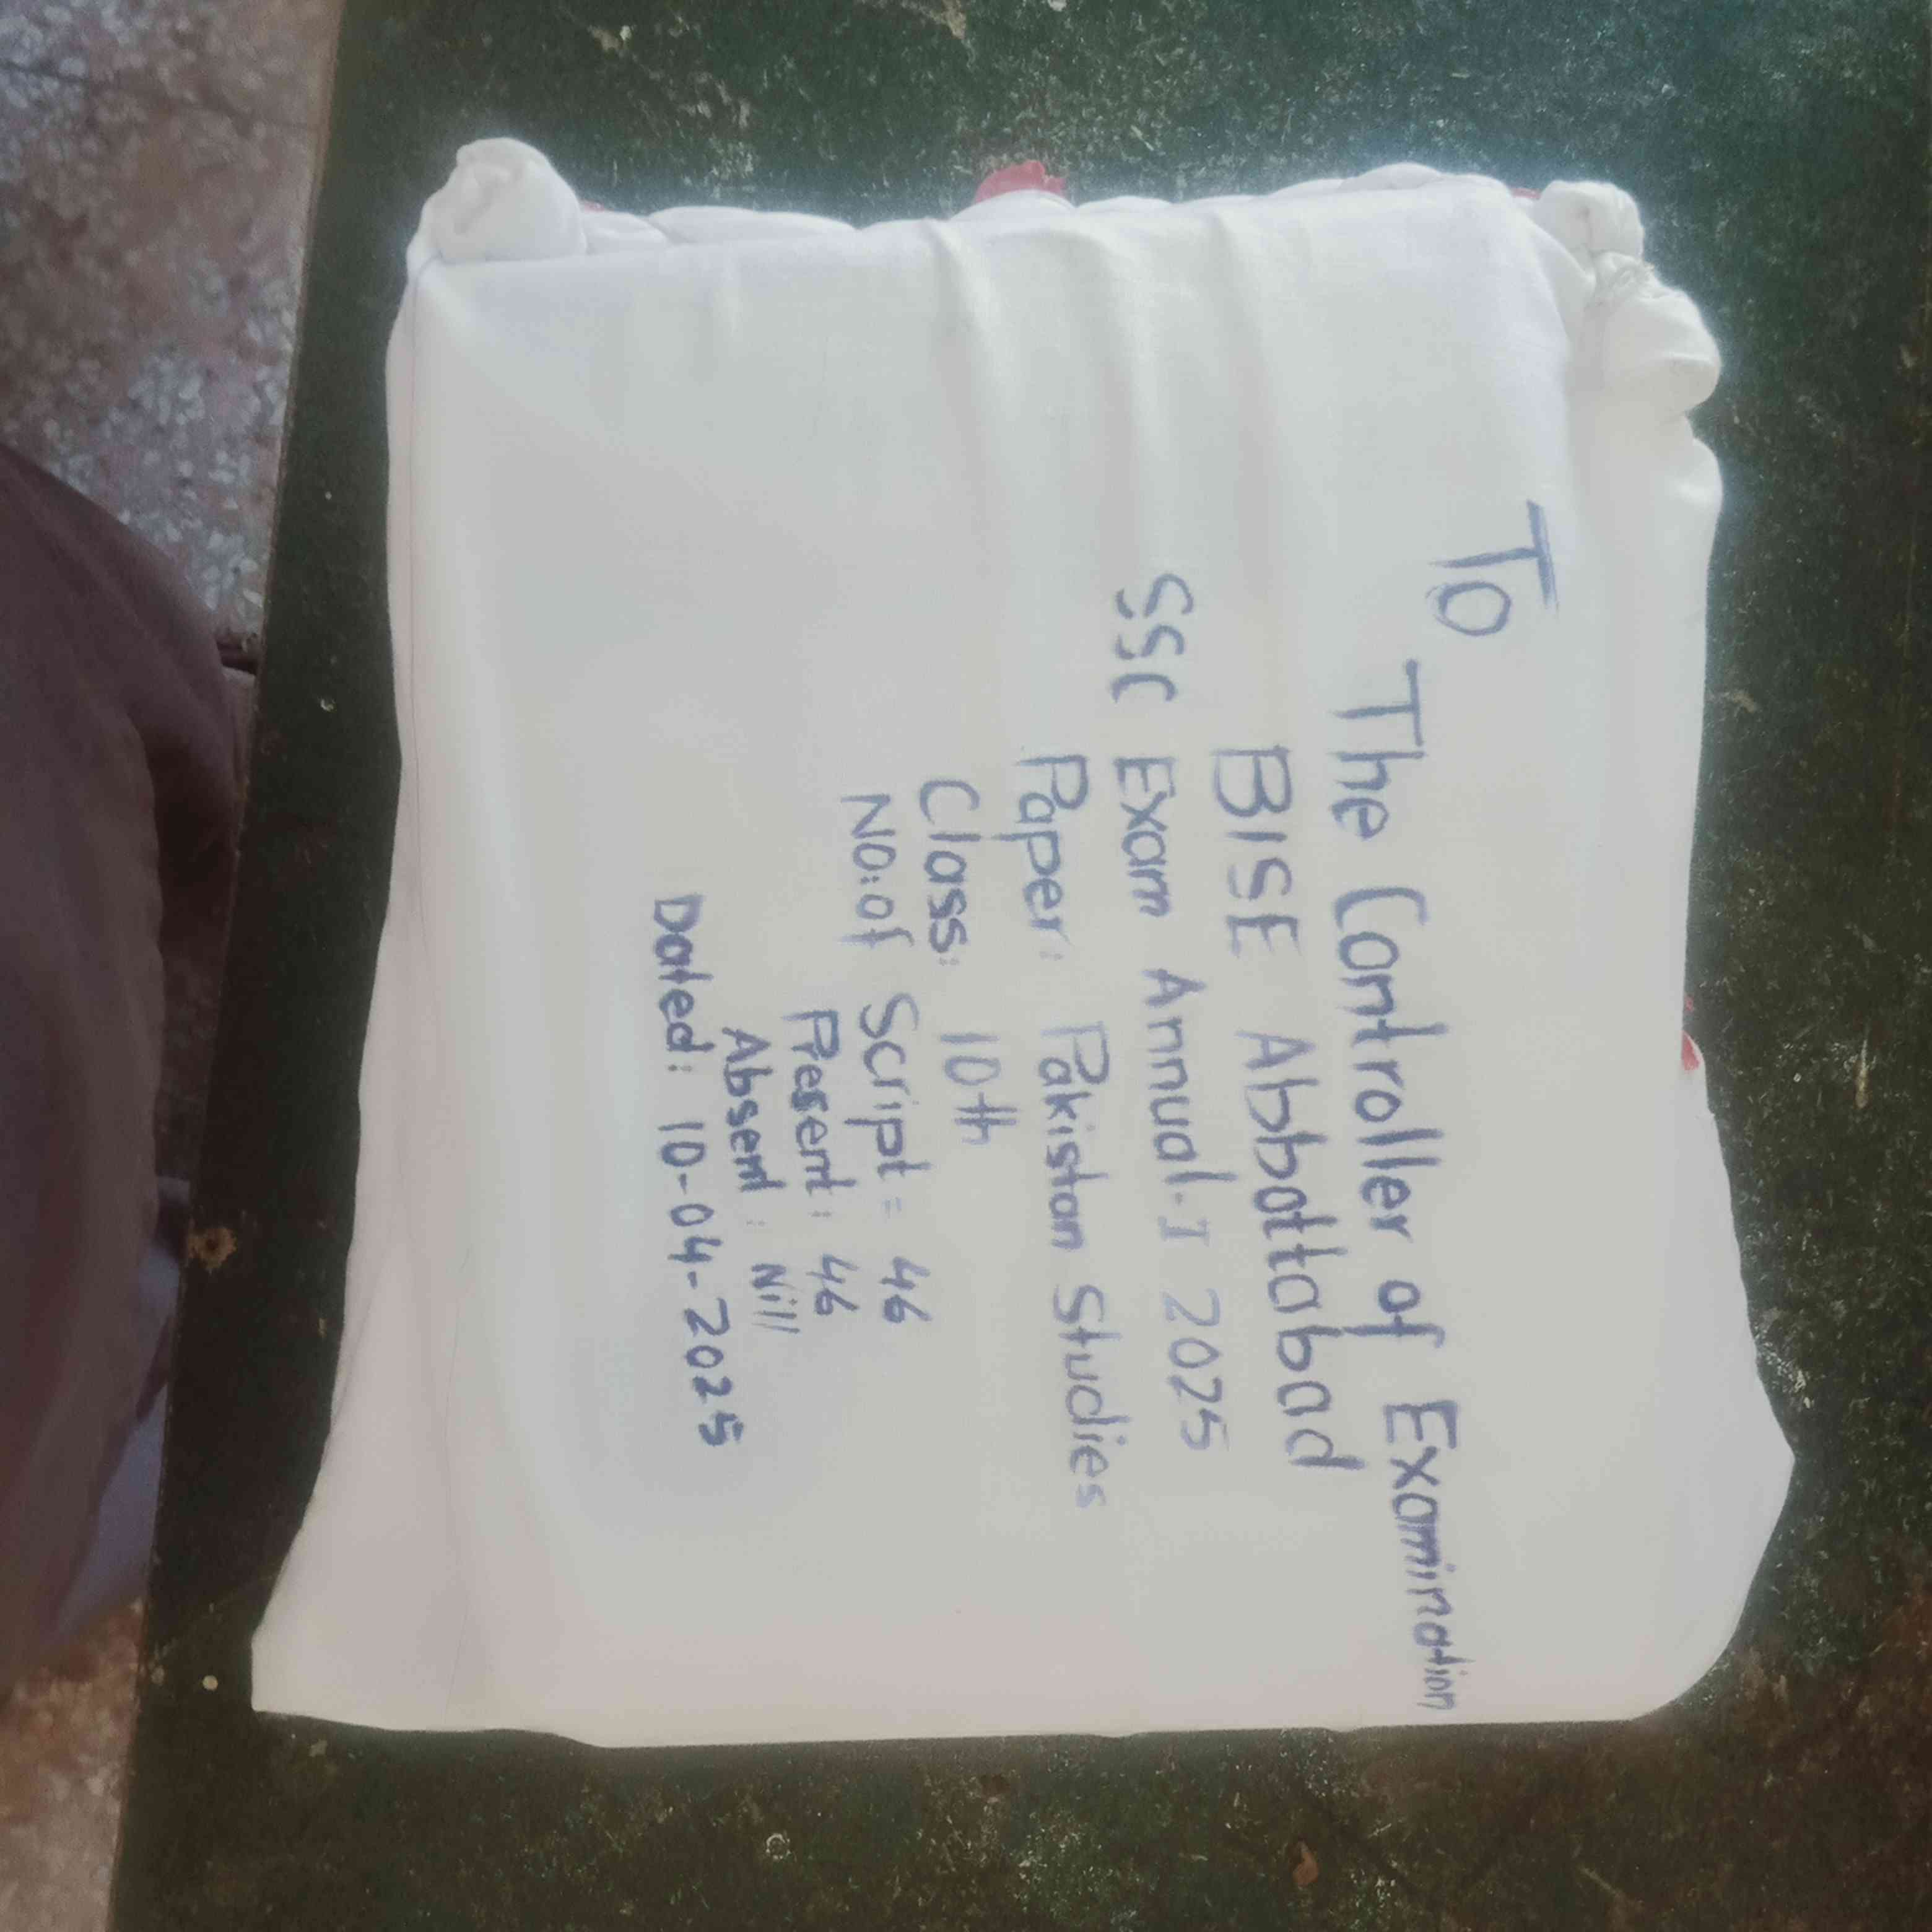 To
The Controller of Examination
BISE Abbottabad
SSC Exam Annual-I 2025
Paper: Pakistan Studies
Class: 10th
No: of Script = 46
Present: 46
Absent: Nill
Dated: 10-04-2025